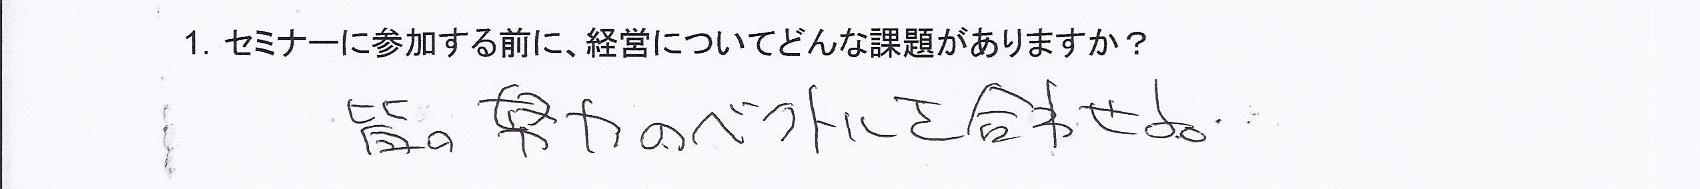 1. セミナーに参加する前に、経営についてどんな課題がありますか？
皆の努力のベクトルを合わせる。